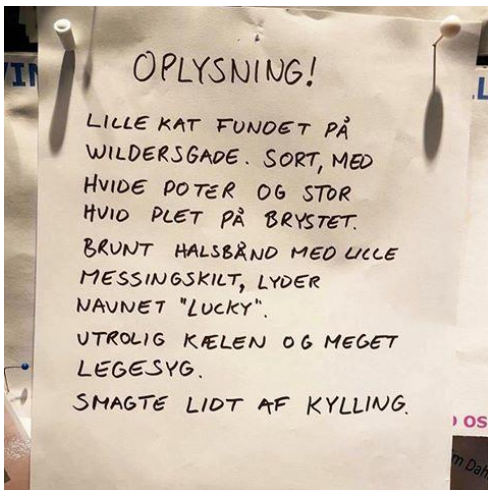 OPLYSNING!
LILLE KAT FUNDET PÅ
WILDERSGADE. SORT, MED
HVIDE POTER OG STOR
HVID PLET PÅ BRYSTET.
BRUNT HALSBÅND MED LILLE
MESSINGSKILT, LYDER
NAVNET "LUCKY".
UTROLIG KÆLEN OG MEGET
LEGESYG.
SMAGTE LIDT AF KYLLING.